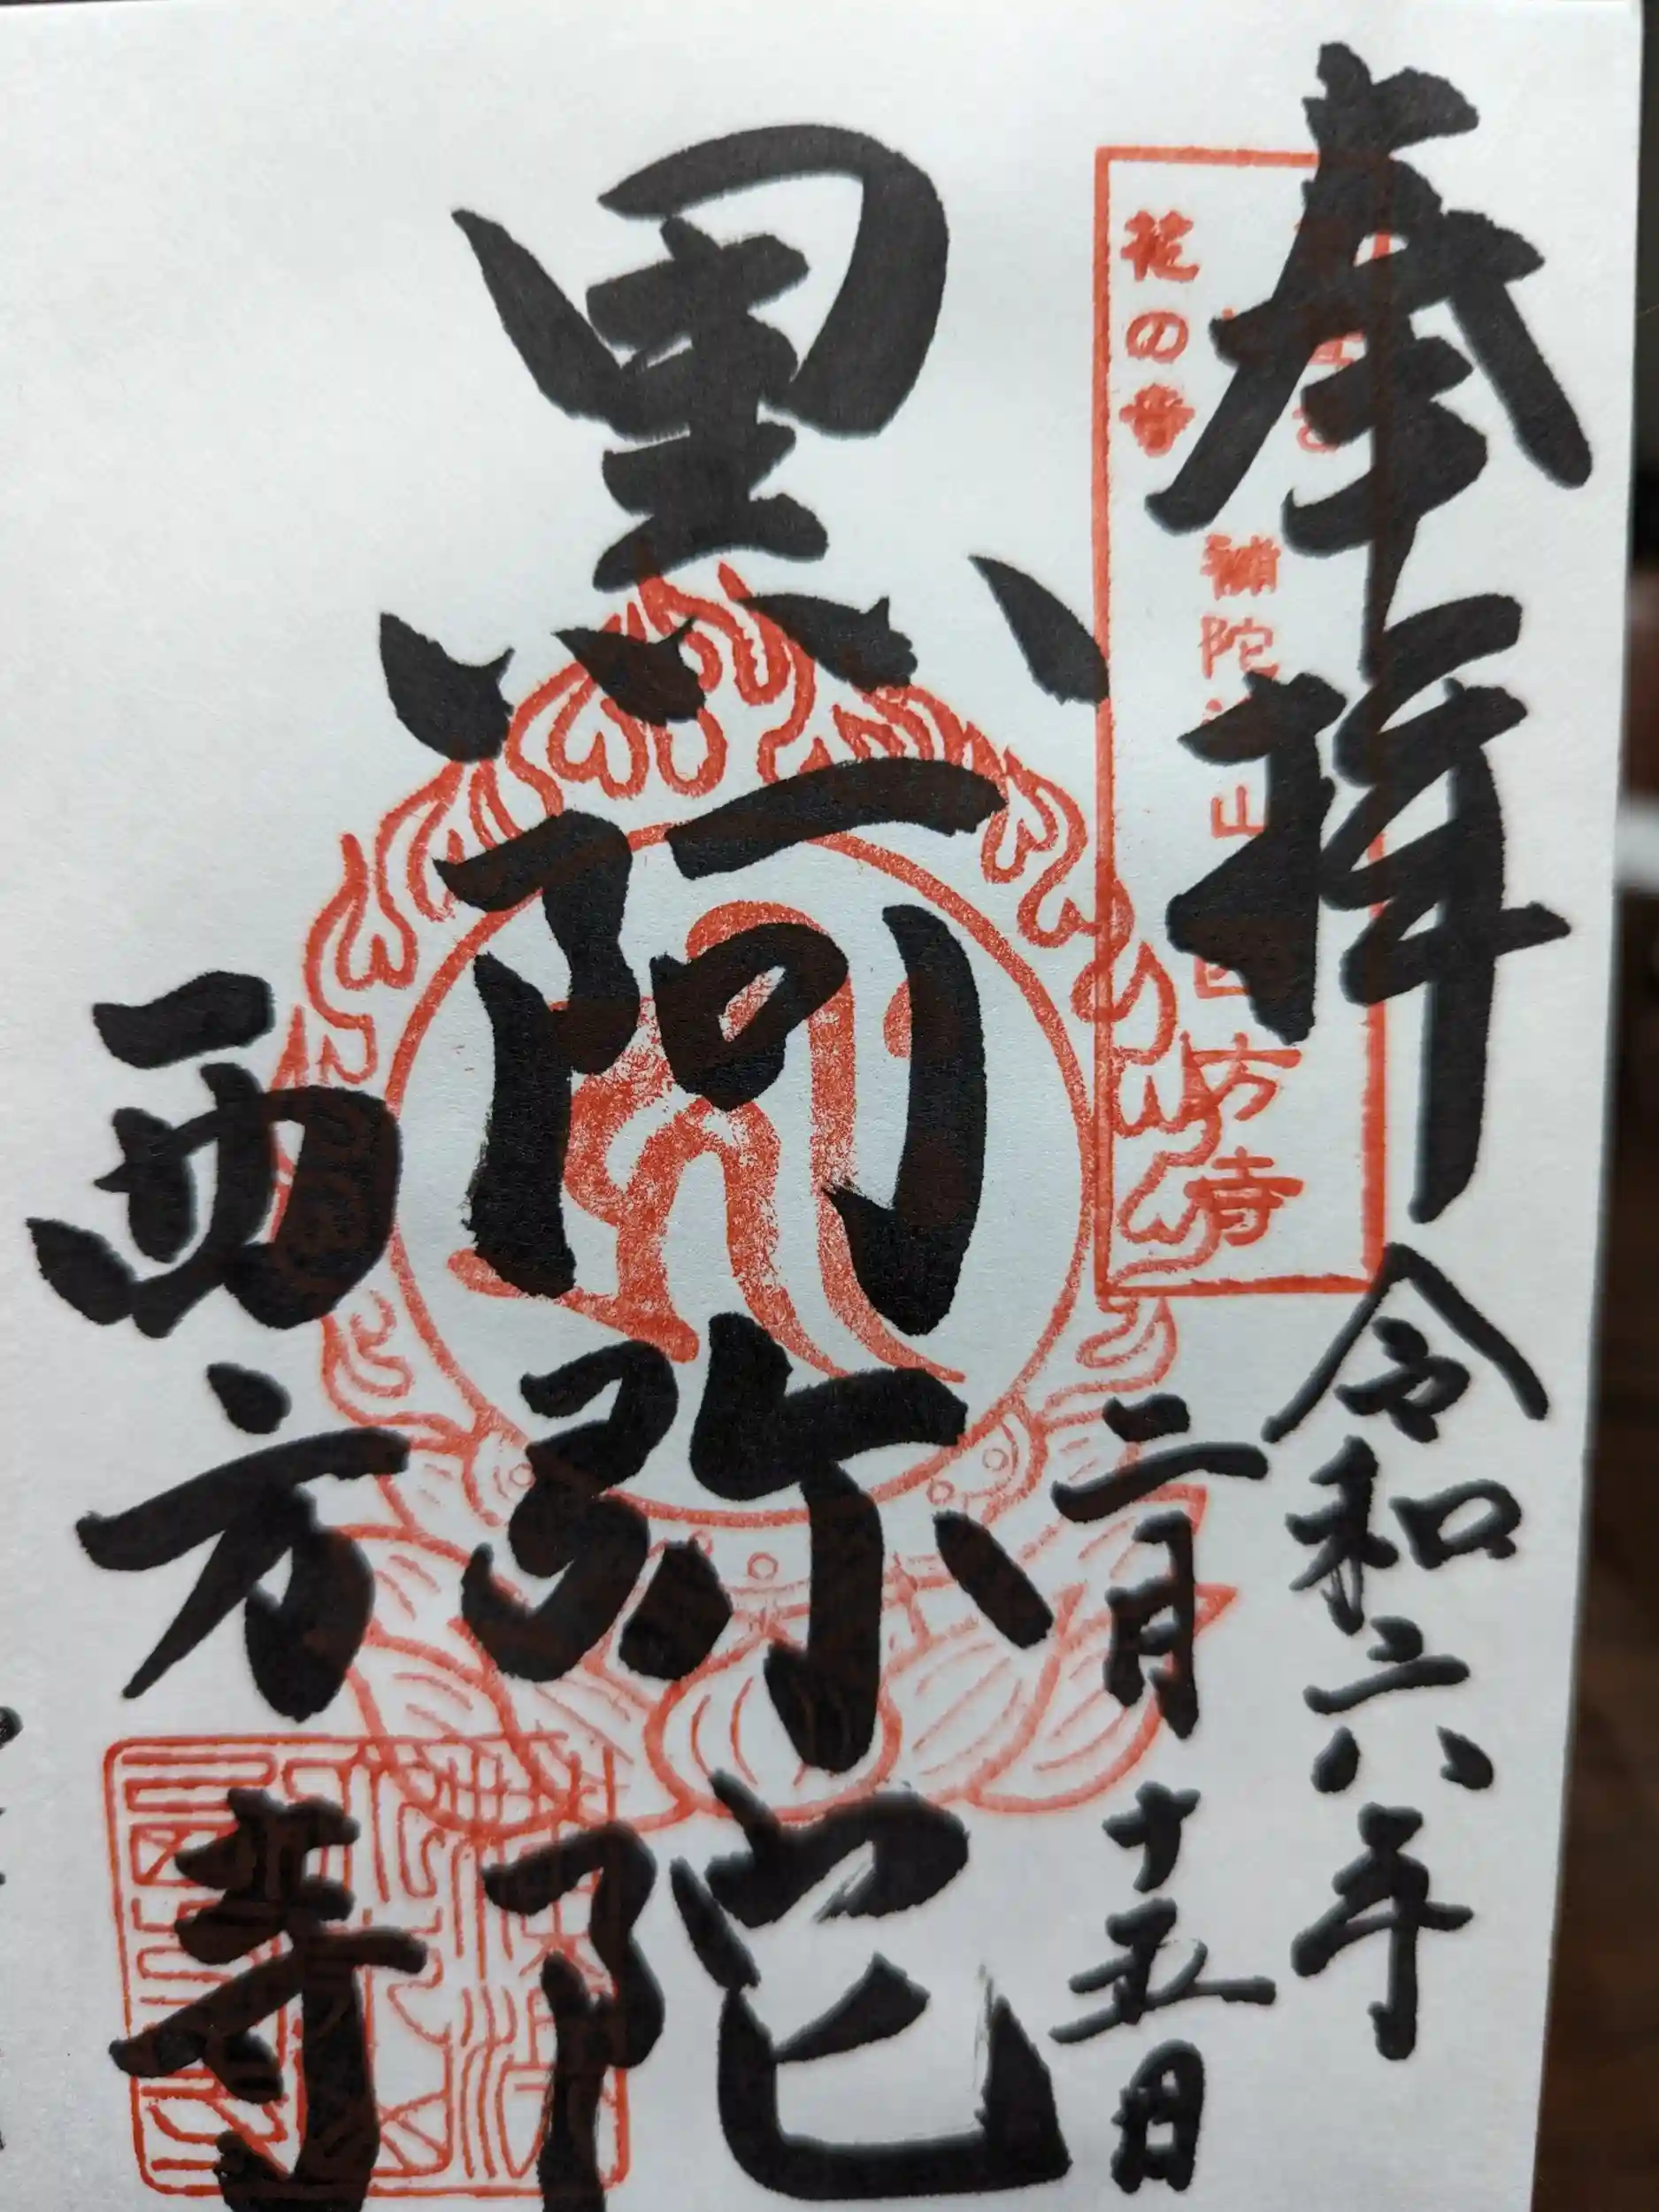 奉拝
令和六年
二月十五日
花の寺
補陀
山
方寺
黒阿弥陀
西方寺